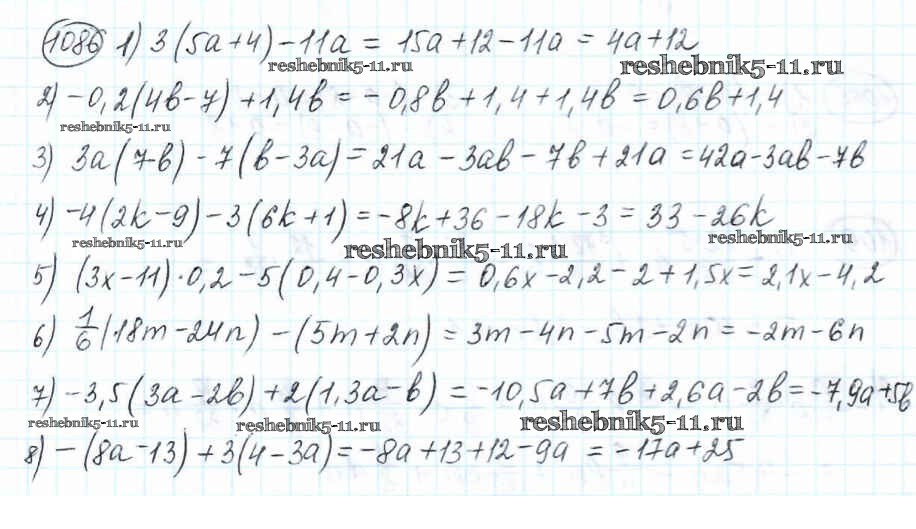 1086 1) 3(5a+4)-11a = 15a+12-11a = 4a+12
reshebnik5-11.ru reshebnik5-11.ru
2) -0,2(4b-7)+1,4b = -0,8b+1,4+1,4b = 0,6b+1,4
reshebnik5-11.ru
3) 3a(7-b)-7(b-3a) = 21a-3ab-7b+21a = 42a-3ab-7b
4) -4(2k-9)-3(6k+1) = -8k+36-18k-3 = 33-26k
reshebnik5-11.ru reshebnik5-11.ru reshebnik5-11.ru
5) (3x-11)·0,2-5(0,4-0,3x) = 0,6x-2,2-2+1,5x = 2,1x-4,2
6) 1/6(18m-24n)-(5m+2n) = 3m-4n-5m-2n = -2m-6n
7) -3,5(3a-2b)+2(1,3a-b) = -10,5a+7b+2,6a-2b = -7,9a+5b
reshebnik5-11.ru reshebnik5-11.ru reshebnik5-11.ru
8) -(8a-13)+3(4-3a) = -8a+13+12-9a = -17a+25